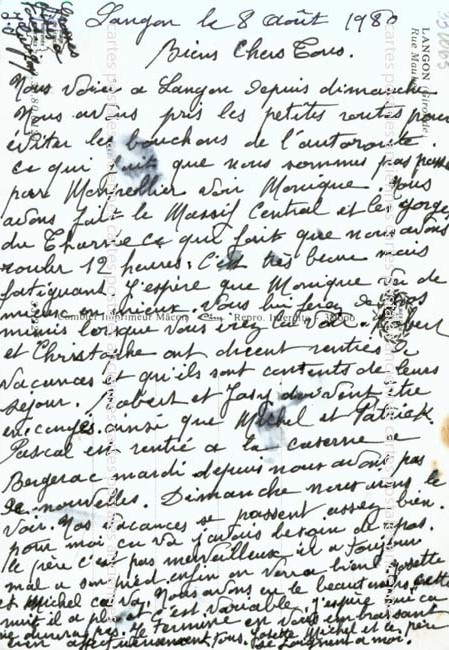 Langon le 8 août 1980
Biens Chers Tous.
Nous voici a Langon depuis dimanche
Nous avons pris les petites routes pour
éviter les bouchons de l'autoroute.
ce qui fait que nous sommes pas passés
par Montpellier voir Monique. Nous
avons fait le Massif Central et les gorges
du Tharne ce qui fait que nous avons
rouler 12 heures, c'est très beau mais
fatiguant. J'espère que Monique va de
mieux en mieux. Vous lui ferez de gros
mimis lorsque vous irez la voir.
Combier Imprimeur Macon Cim Repro. Interdite
et Christophe ont dicent rentrés de
vacances et qu'ils sont contents de leurs
séjour. Robert et Josy doivent être
en congés ainsi que Michel et Patrick
Pascal est rentré a la caserne a
Bergerac mardi depuis nous avons pas
de nouvelles. Dimanche nous irons le
voir. Nos vacances se passent assez bien.
pour moi ca va j'avais besoin de repos.
le père c'est pas merveilleux il a toujours
mal a son pied enfin on verra bien. Josette
et Michel ca va. Nous avons eu le beau temps cette
nuit il a plu et c'est variable, j'espère que ca
ne durera pas. Je Termine en vous embrassant
bien affectueusement tous. Josette Michel et le père
se joignent a moi.
LANGON (Gironde)